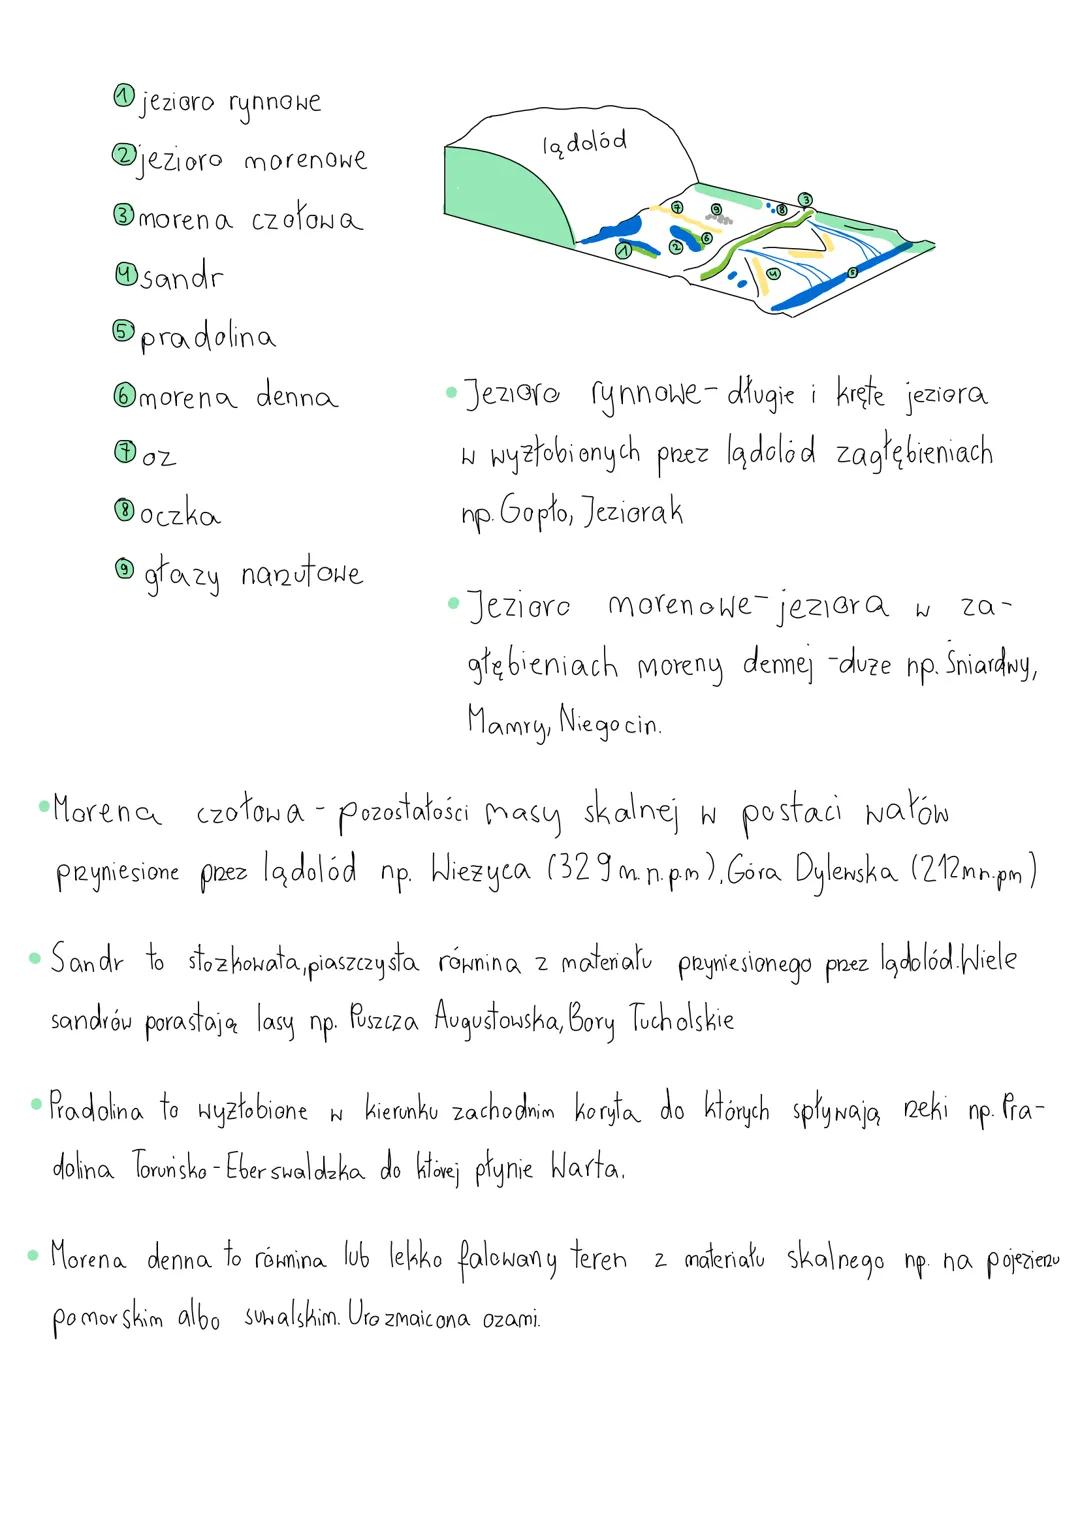 1 jezioro rynnowe
2 jezioro morenowe
3 morena czołowa
4 sandr
5 pradolina
6 morena denna
7 oz
8 oczka
9 głazy narzutowe
lądolód
7
9
8
3
1
2
6
4
5
• Jezioro rynnowe - długie i kręte jeziora
w wyżłobionych przez lądolód zagłębieniach
np. Gopło, Jeziorak
• Jezioro morenowe - jeziora w za-
głębieniach moreny dennej - duże np. Śniardwy,
Mamry, Niegocin.
• Morena czołowa - pozostałości masy skalnej w postaci wałów
przyniesione przez lądolód np. Wieżyca (329 m.n.p.m), Góra Dylewska (212mn.pm)
• Sandr to stożkowata, piaszczysta równina z materiału przyniesionego przez lądolód. Wiele
sandrów porastają lasy np. Puszcza Augustowska, Bory Tucholskie
• Pradolina to wyżłobione w kierunku zachodnim koryta do których spływają rzeki np. Pra-
dolina Toruńsko - Eberswaldzka do której płynie Warta.
• Morena denna to równina lub lekko falowany teren z materiału skalnego np. na pojezierzu
pomorskim albo suwalskim. Urozmaicona ozami.